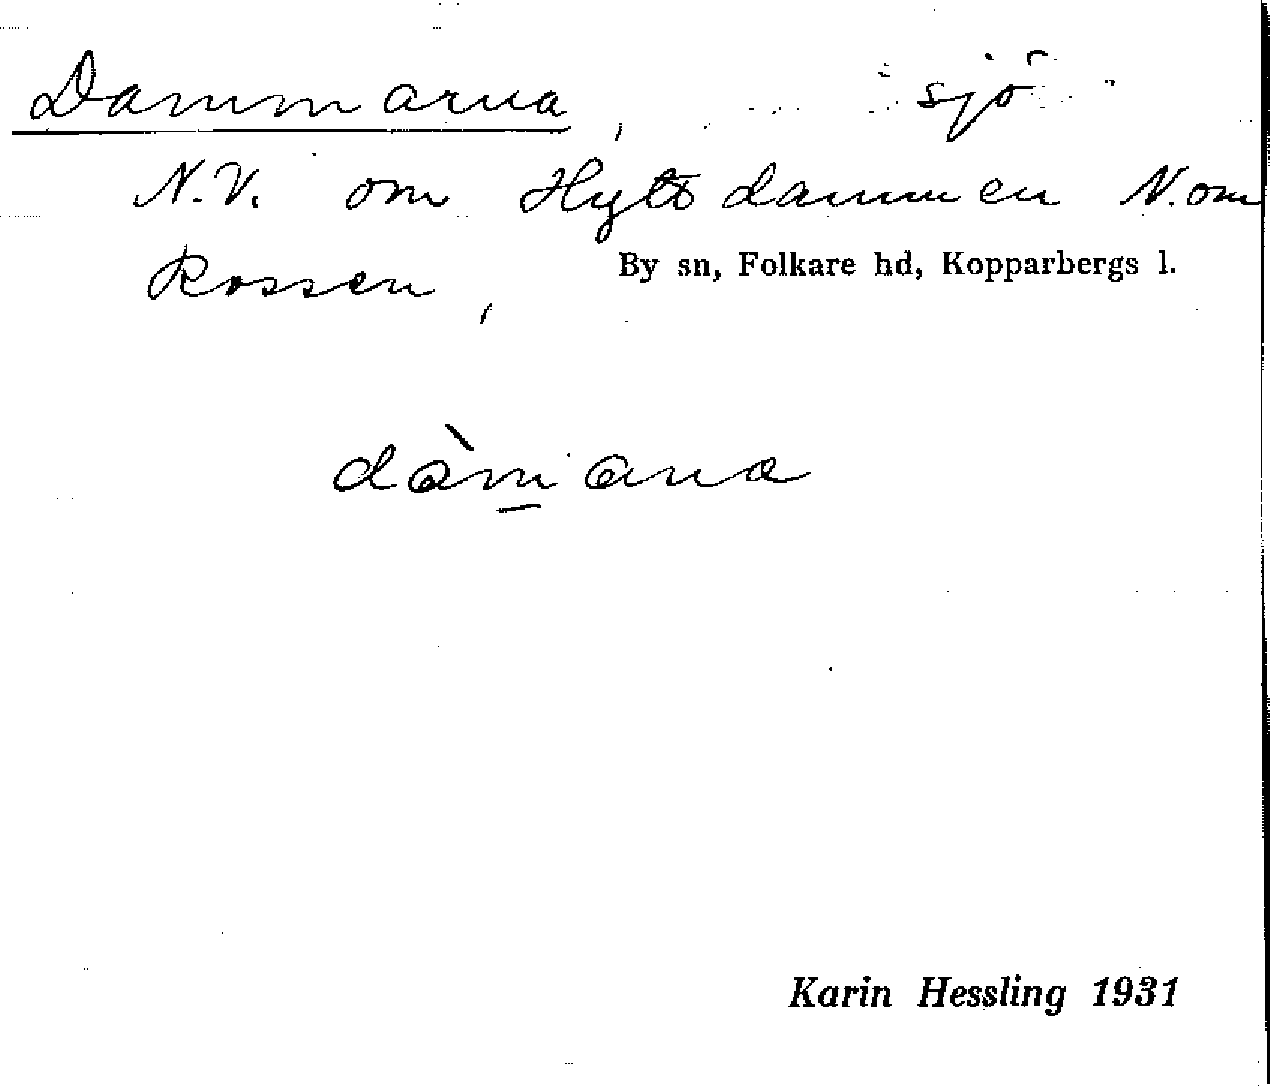 Dammarna, sjö
N.V. om Hyttdammen N. om
Rossen,
By sn, Folkare hd, Kopparbergs l.
dàm̲ana
Karin Hessling 1931